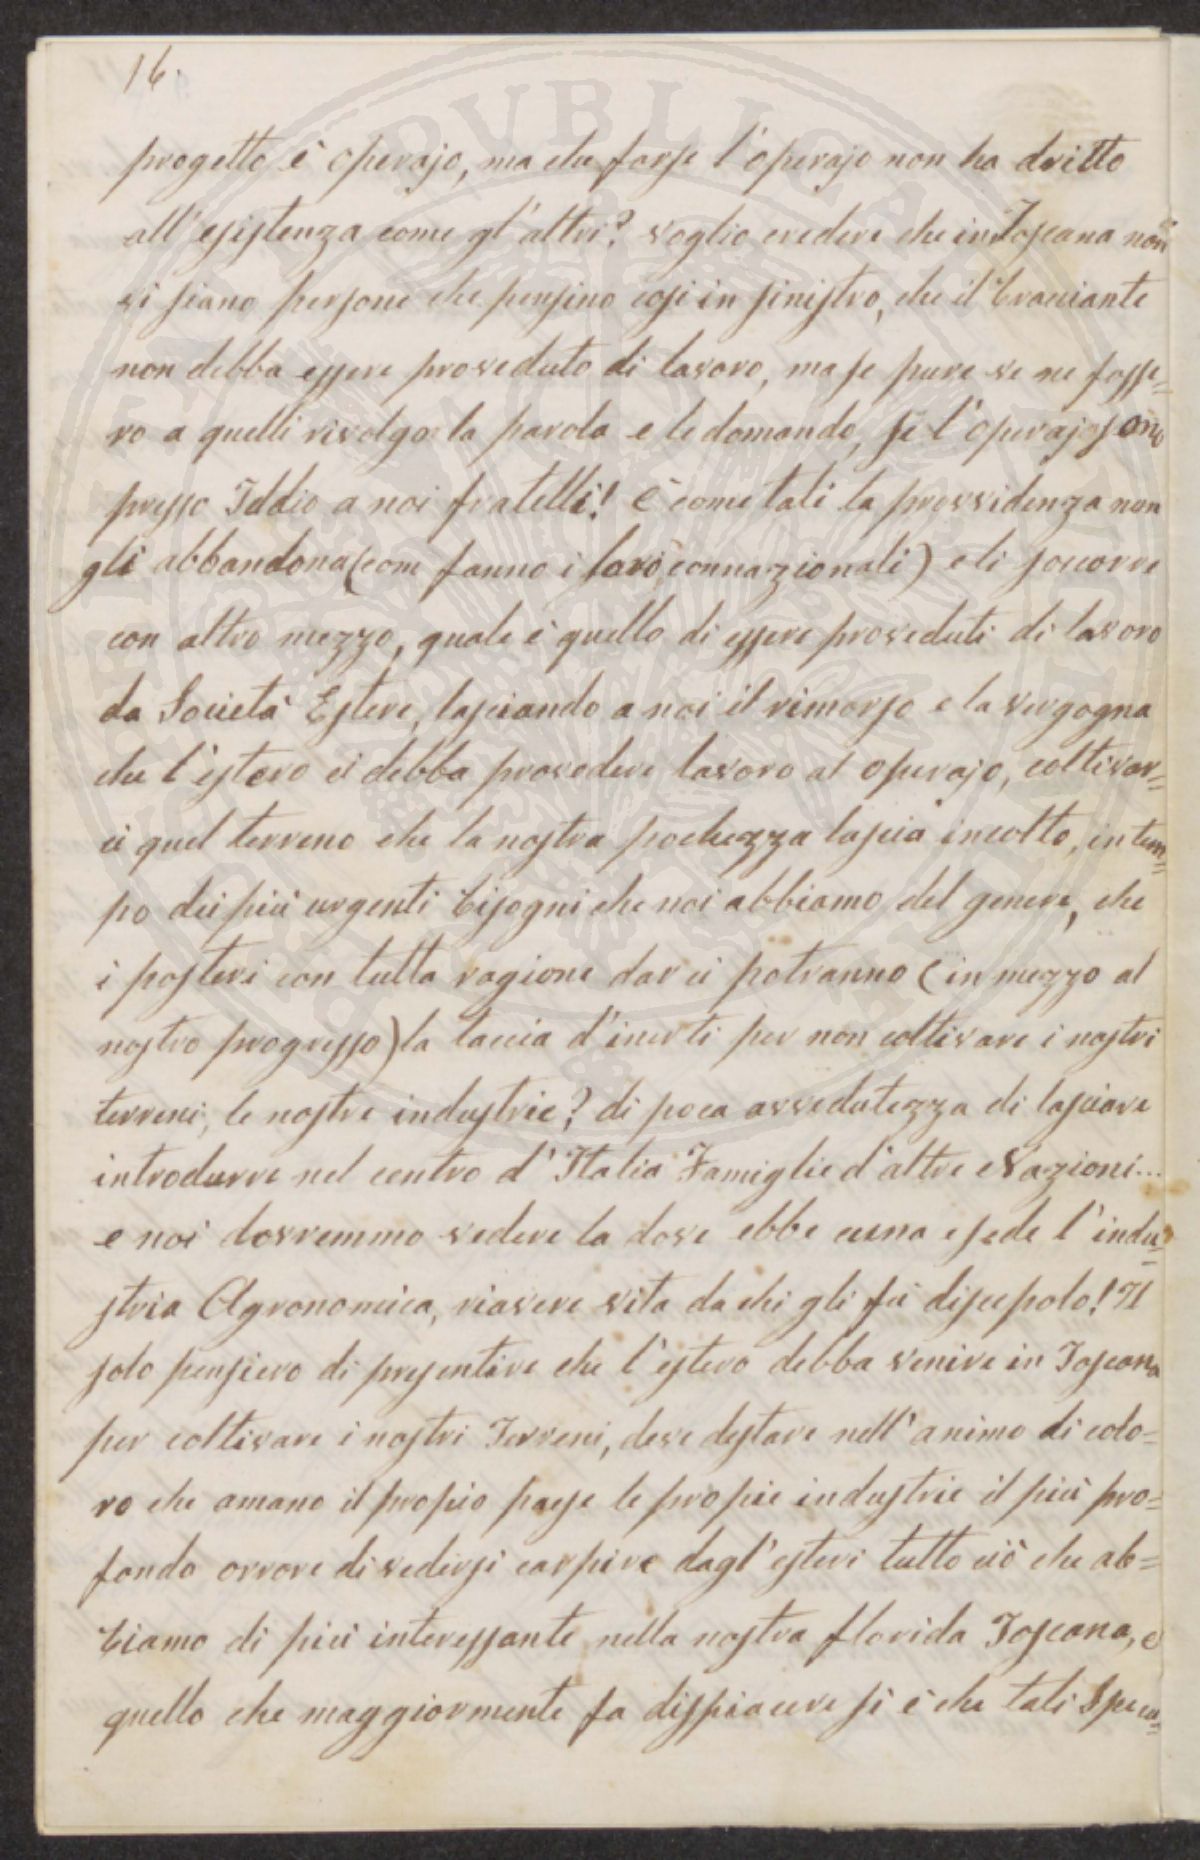 16.
progetto è operajo, ma che forse l'operajo non ha dritto
all'esistenza come gl'altri? voglio credere che in Toscana non
vi siano persone che pensino così in sinistro, che il bracciante
non debba essere proveduto di lavoro, ma se pure ve ne fosse=
ro a quelli rivolgo la parola e le domando, se l'operajo sono
presso Iddio a noi fratelli! E come tali la provvidenza non
gli abbandona (com fanno i loro connazionali) e li soccorre
con altro mezzo, quale è quello di essere proveduti di lavoro
da Società Estere, lasciando a noi il rimorso e la vergogna
che l'estero ci debba provedere lavoro al operajo, coltivar=
ci quel terreno che la nostra pochezza lascia incolto, in tem=
po dei più urgenti bisogni che noi abbiamo del genere, che
i posteri con tutta ragione dar ci potranno (in mezzo al
nostro progresso) la taccia d'inerti per non coltivare i nostri
terreni, le nostre industrie? di poca avvedutezza di lasciare
introdurre nel centro d'Italia Famiglie d'altre Nazioni...
e noi dovremmo vedere la dove ebbe cuna e sede l'indu=
stria Agronomica, riavere vita da chi gli fù discepolo! Il
solo pensiero di presentire che l'estero debba venire in Toscana
per coltivare i nostri Terreni, deve destare nell'animo di colo=
ro che amano il propio paese le propie industrie il più pro=
fondo orrore di vedersi carpire dagl'esteri tutto ciò che ab=
biamo di più interessante nella nostra florida Toscana, e
quello che maggiormente fa dispiacere si è che tali Specu=
PUBLICA